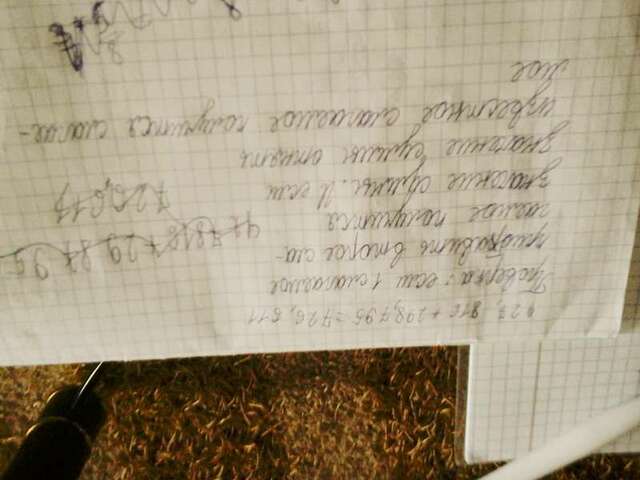 427, 816 + 298,795 = 726, 611
Проверка: если 1 слагаемое
прибавить второе сла-
гаемое получится
значение суммы. И если
значение суммы отнять
известное слагаемое получится слагае-
мое